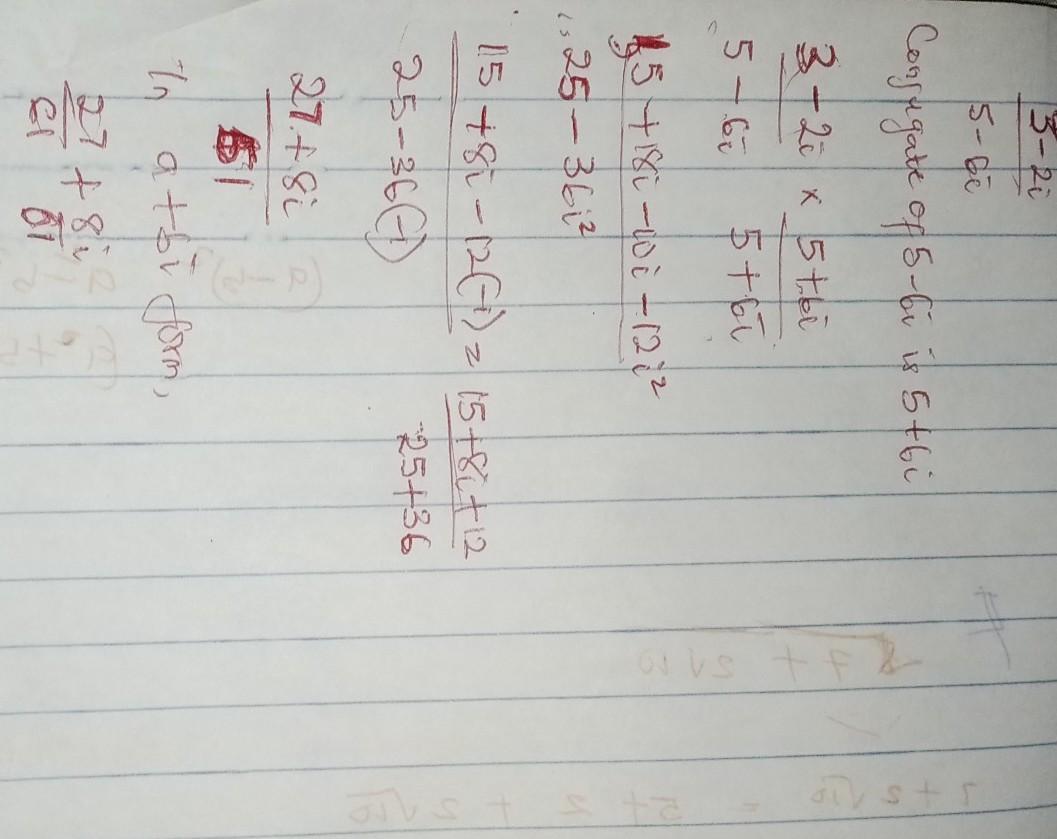 3 - 2i
5 - 6i
Conjugate of 5 - 6i is 5 + 6i
3 - 2i × 5 + 6i
5 - 6i 5 + 6i
15 + 18i - 10i - 12i²
25 - 36i²
15 + 8i - 12(-1) = 15 + 8i + 12
25 - 36(-1) 25 + 36
27 + 8i
61
In a + bi form,
27 + 8i
61 61